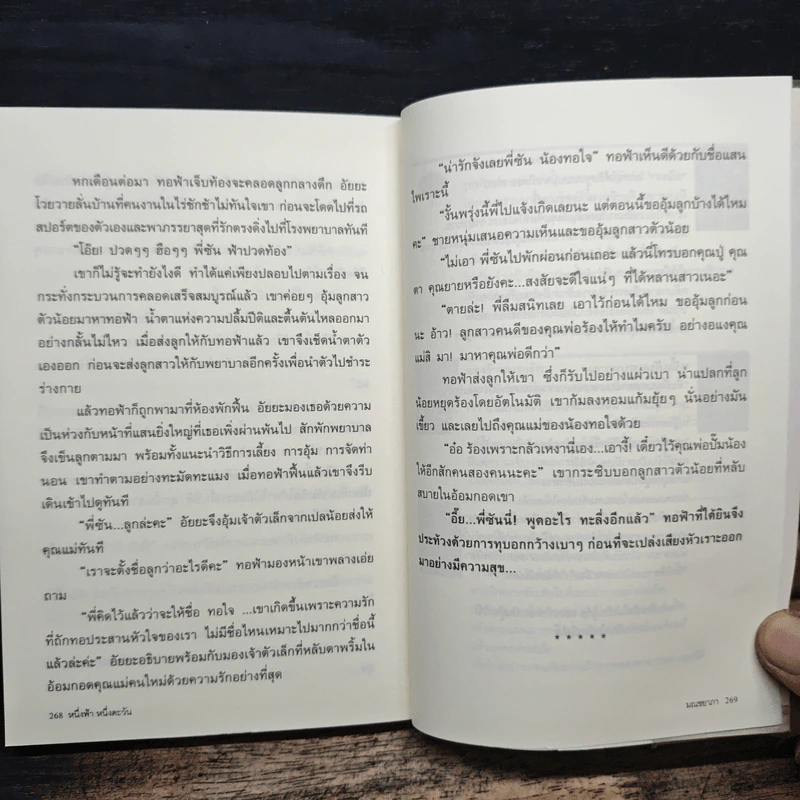 หกเดือนต่อมา ทอฟ้าเจ็บท้องจะคลอดลูกกลางดึก อัยยะ
โวยวายลั่นบ้านที่คนงานในไร่ชักช้าไม่ทันใจเขา ก่อนจะโดดไปที่รถ
สปอร์ตของตัวเองและพาภรรยาสุดที่รักตรงดิ่งไปที่โรงพยาบาลทันที
“โอ๊ย! ปวดๆๆ ฮือๆๆ พี่ซัน ฟ้าปวดท้อง”
เขาก็ไม่รู้จะทำยังไงดี ทำได้แค่เพียงปลอบไปตามเรื่อง จน
กระทั่งกระบวนการคลอดเสร็จสมบูรณ์แล้ว เขาค่อยๆ อุ้มลูกสาว
ตัวน้อยมาหาทอฟ้า น้ำตาแห่งความปลื้มปีติและตื้นตันไหลออกมา
อย่างกลั้นไม่ไหว เมื่อส่งลูกให้กับทอฟ้าแล้ว เขาจึงเช็ดน้ำตาตัว
เองออก ก่อนจะส่งลูกสาวให้กับพยาบาลอีกครั้งเพื่อนำตัวไปชำระ
ร่างกาย
แล้วทอฟ้าก็ถูกพามาที่ห้องพักฟื้น อัยยะมองเธอด้วยความ
เป็นห่วงกับหน้าที่แสนยิ่งใหญ่ที่เธอเพิ่งผ่านพ้นไป สักพักพยาบาล
จึงเข็นลูกตามมา พร้อมทั้งแนะนำวิธีการเลี้ยง การอุ้ม การจัดท่า
นอน เขาทำตามอย่างทะมัดทะแมง เมื่อทอฟ้าฟื้นแล้วเขาจึงรีบ
เดินเข้าไปดูทันที
“พี่ซัน...ลูกล่ะคะ” อัยยะจึงอุ้มเจ้าตัวเล็กจากเปลน้อยส่งให้
คุณแม่ทันที
“เราจะตั้งชื่อลูกว่าอะไรดีคะ” ทอฟ้ามองหน้าเขาพลางเอ่ย
ถาม
“พี่คิดไว้แล้วว่าจะให้ชื่อ ทอใจ ...เขาเกิดขึ้นเพราะความรัก
ที่ถักทอประสานหัวใจของเรา ไม่มีชื่อไหนเหมาะไปมากกว่าชื่อนี้
แล้วล่ะค่ะ” อัยยะอธิบายพร้อมกับมองเจ้าตัวเล็กที่หลับตาพริ้มใน
อ้อมกอดคุณแม่คนใหม่ด้วยความรักอย่างที่สุด
268 หนึ่งฟ้า หนึ่งตะวัน
“น่ารักจังเลยพี่ซัน น้องทอใจ” ทอฟ้าเห็นดีด้วยกับชื่อแสน
ไพเราะนี้
“งั้นพรุ่งนี้พี่ไปแจ้งเกิดเลยนะ แต่ตอนนี้ขออุ้มลูกบ้างได้ไหม
คะ” ชายหนุ่มเสนอความเห็นและขออุ้มลูกสาวตัวน้อย
“ไม่เอา พี่ซันไปพักผ่อนก่อนเถอะ แล้วนี่โทรบอกคุณปู่ คุณ
ตา คุณยายหรือยังคะ...สงสัยจะดีใจแน่ๆ ที่ได้หลานสาวเนอะ”
“ตายล่ะ! พี่ลืมสนิทเลย เอาไว้ก่อนได้ไหม ขออุ้มลูกก่อน
นะ อ้าว! ลูกสาวคนดีของคุณพ่อร้องให้ทำไมครับ อย่างอแงคุณ
แม่สิ มา! มาหาคุณพ่อดีกว่า”
ทอฟ้าส่งลูกให้เขา ซึ่งก็รับไปอย่างแผ่วเบา น่าแปลกที่ลูก
น้อยหยุดร้องโดยอัตโนมัติ เขาก้มลงหอมแก้มยุ้ยๆ นั่นอย่างมัน
เขี้ยว และเลยไปถึงคุณแม่ของน้องทอใจด้วย
“อ๋อ ร้องเพราะกลัวเหงานี่เอง...เอางี้! เดี๋ยวไว้คุณพ่อปั๊มน้อง
ให้อีกสักคนสองคนนะคะ” เขากระซิบบอกลูกสาวตัวน้อยที่หลับ
สบายในอ้อมกอดเขา
“อื๊ย...พี่ซันนี่! พูดอะไร ทะลึ่งอีกแล้ว” ทอฟ้าที่ได้ยินจึง
ประท้วงด้วยการทุบอกกว้างเบาๆ ก่อนที่จะเปล่งเสียงหัวเราะออก
มาอย่างมีความสุข...
*****
มณชยาภา 269